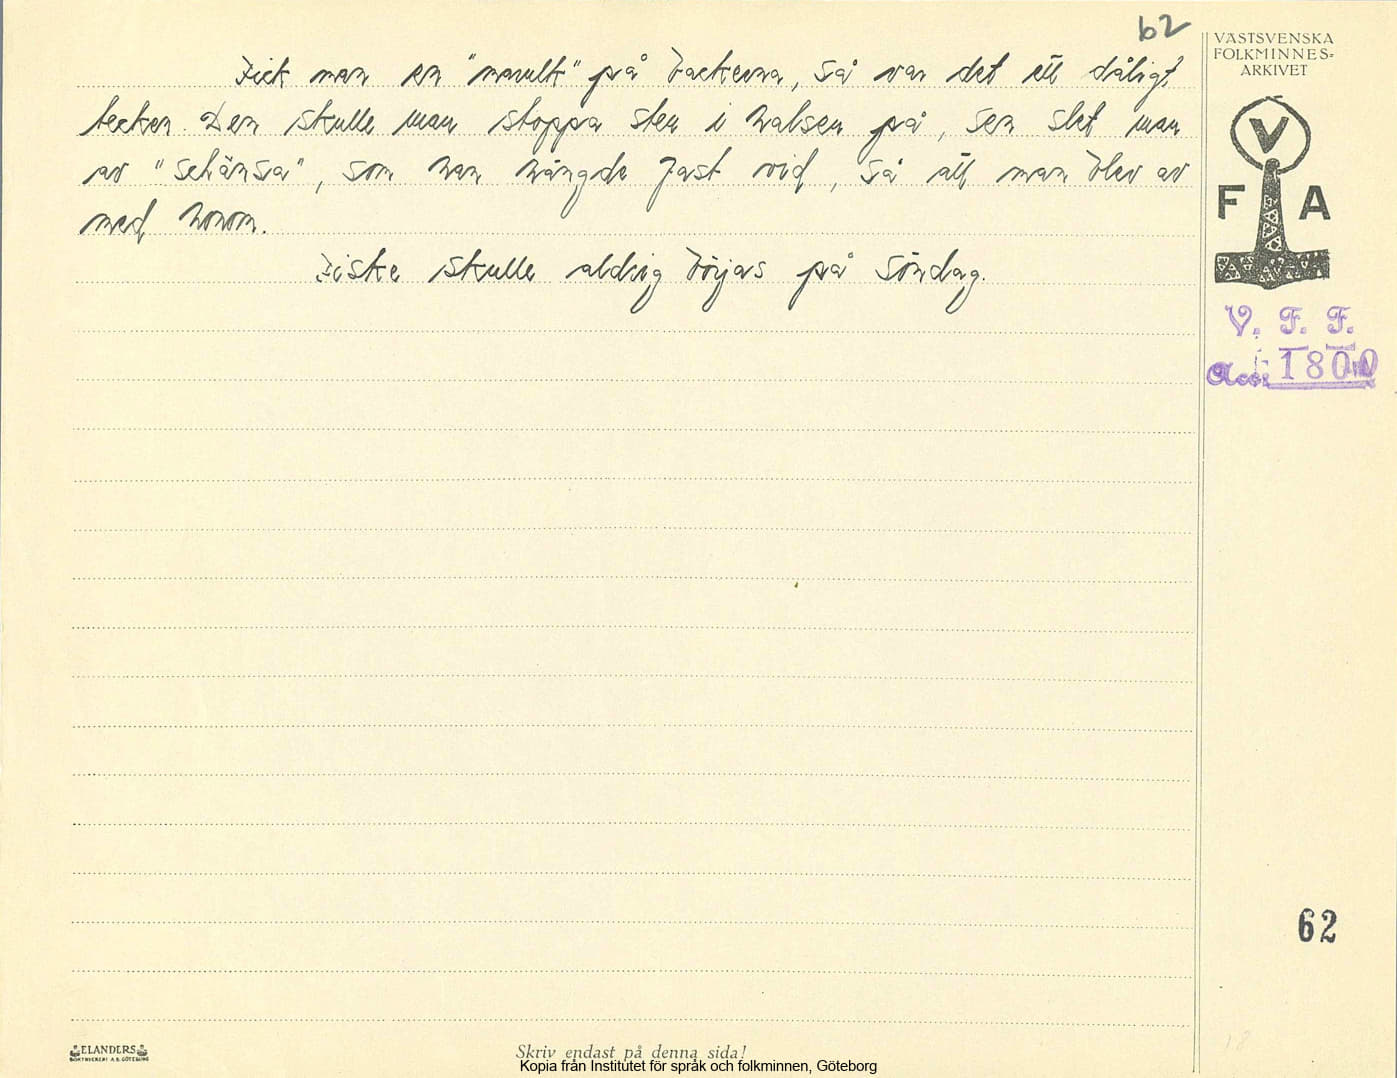 62
VÄSTSVENSKA
FOLKMINNES=
ARKIVET
Fick man en "marulk" på backorna, så var det ett dåligt
tecken. Den skulle man stoppa sten i halsen på, sen slet man
av "schänsa", som han hängde fast vid, så att man blev av
med honom.
Fiske skulle aldrig börjas på Söndag.
V
F A
V. F. F.
Acc: 1800
62
ELANDERS
BOKTRYCKERI A.B. GÖTEBORG
Skriv endast på denna sida!
Kopia från Institutet för språk och folkminnen, Göteborg